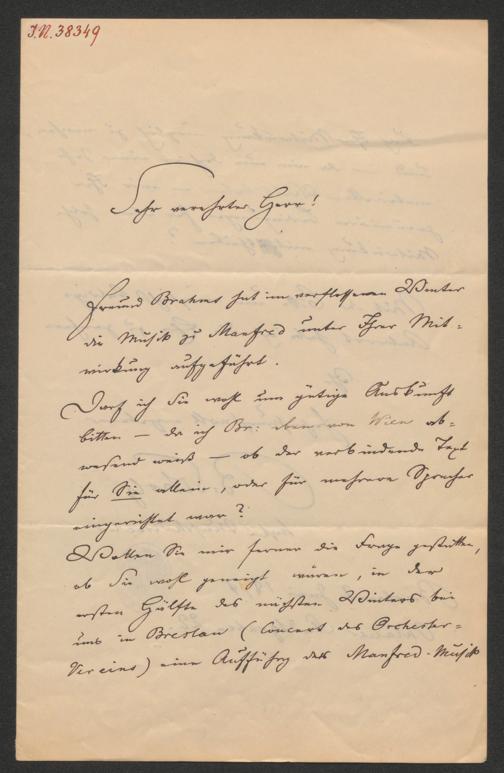 I.N. 38349
Sehr verehrter Herr!
Freund Brahms hat im verflossenen Winter
die Musik zu Manfred unter Ihrer Mit-
wirkung aufgeführt.
Darf ich Sie wohl um gütige Auskunft
bitten — da ich Br: eben von Wien ab-
wesend weiß — ob der verbindende Text
für Sie allein, oder für mehrere Sprecher
eingerichtet war?
Wollen Sie mir ferner die Frage gestatten,
ob Sie wohl geneigt wären, in der
ersten Hälfte des nächsten Winters bei
uns in Breslau (Concert des Orchester-
Vereins) eine Aufführg der Manfred-Musik